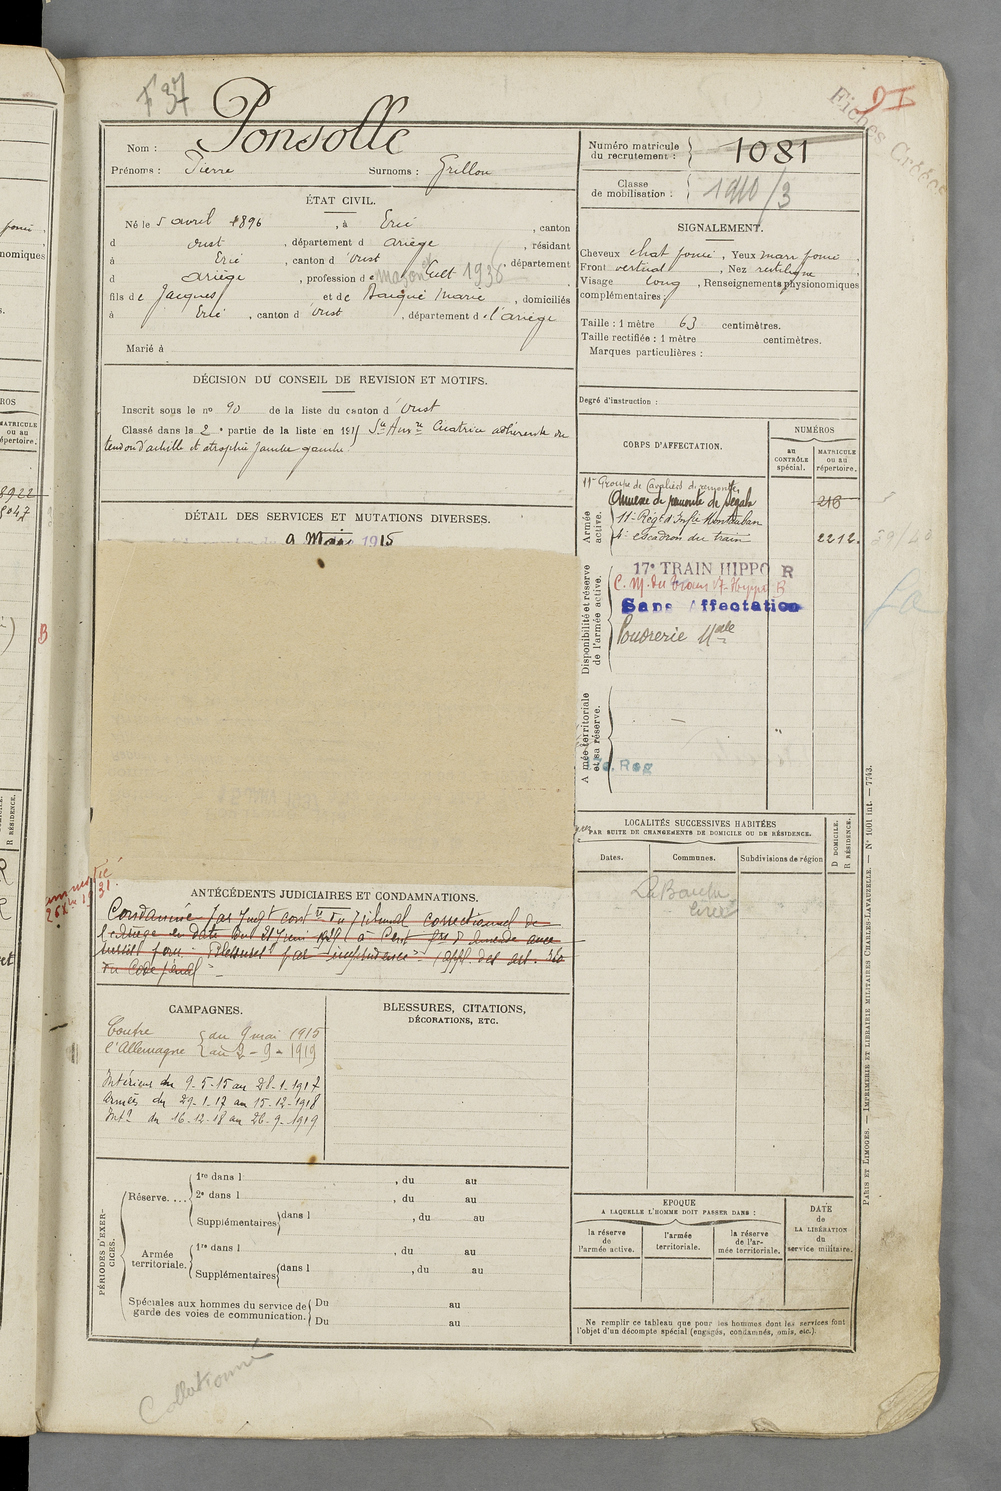 F 37
Fiches Créées
Nom : Ponsolle
Prénoms : Pierre Surnoms : Grillou
Numéro matricule du recrutement : 1081
Classe de mobilisation : 1910/3
ÉTAT CIVIL.
Né le 5 avril 1896 , à Ercé , canton
d Oust , département d Ariège , résidant
à Ercé , canton d Oust , département
d Ariège , profession de Cult 1936
fils de Jacques et de Marie , domiciliés
à Ercé , canton d Oust , département d l'Ariège
Marié à
SIGNALEMENT.
Cheveux chat foncé , Yeux marr foncé
Front vertical , Nez rectiligne
Visage long , Renseignements physionomiques
complémentaires :
Taille : 1 mètre 63 centimètres.
Taille rectifiée : 1 mètre centimètres.
Marques particulières :
Degré d'instruction :
DÉCISION DU CONSEIL DE REVISION ET MOTIFS.
Inscrit sous le no 90 de la liste du canton d Oust
Classé dans la 2e partie de la liste en 1915 Cicatrice adhérente au
tendon d'achille et atrophie jambe gauche
DÉTAIL DES SERVICES ET MUTATIONS DIVERSES.
9 Mai 1915
CORPS D'AFFECTATION.
NUMÉROS
au CONTRÔLE spécial.
MATRICULE ou au répertoire.
Armée active.
11e Groupe de Cavaliers de remontes
Annexe de remonte de 216
11e Régt d'Inftie Montauban
escadron du train 2212
Disponibilité et réserve de l'armée active.
17e TRAIN HIPPO R
Sans Affectation
Poudrerie Nale
Armée territoriale et sa réserve.
Reg
LOCALITÉS SUCCESSIVES HABITÉES
PAR SUITE DE CHANGEMENTS DE DOMICILE OU DE RÉSIDENCE.
Dates. Communes. Subdivisions de région
D DOMICILE.
R RÉSIDENCE.
Ercé
ANTÉCÉDENTS JUDICIAIRES ET CONDAMNATIONS.
Condamné par Jugt contre du Tribunal correctionnel de
en date du à Cent frs d'amende avec
sursis pour : "Blessures par imprudence" (appl. des art. 320
du Code pénal)
CAMPAGNES.
Contre l'Allemagne { du 9 mai 1915
au 2-9-1919
Intérieur du 9-5-15 au 28-1-1917
Armées du 29-1-17 au 15-12-1918
Intr du 16-12-18 au 26-9-1919
BLESSURES, CITATIONS,
DÉCORATIONS, ETC.
PÉRIODES D'EXERCICES.
Réserve.... 1re dans l , du au
2e dans l , du au
Supplémentaires dans l , du au
Armée territoriale. 1re dans l , du au
Supplémentaires dans l , du au
Spéciales aux hommes du service de garde des voies de communication. Du au
Du au
EPOQUE
A LAQUELLE L'HOMME DOIT PASSER DANS :
la réserve de l'armée active.
l'armée territoriale.
la réserve de l'armée territoriale.
DATE de LA LIBÉRATION du service militaire.
Ne remplir ce tableau que pour les hommes dont les services font
l'objet d'un décompte spécial (engagés, condamnés, omis, etc.).
PARIS ET LIMOGES. — IMPRIMERIE ET LIBRAIRIE MILITAIRES CHARLES-LAVAUZELLE. — No 1001 int. — 7743.
Collationné